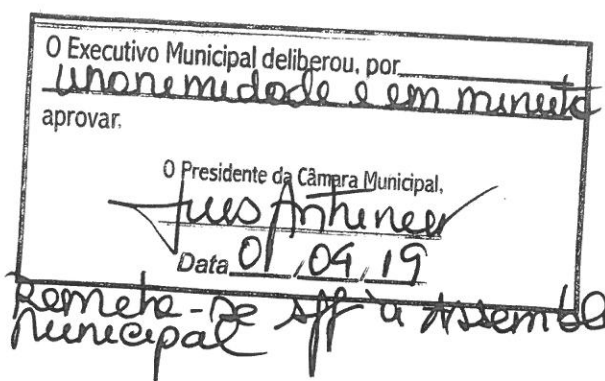 O Executivo Municipal deliberou, por
unanimidade e em minuta
aprovar.
O Presidente da Câmara Municipal,
Luis Antunes
Data 01, 04, 19
Remeta-se sff à Assembl
Municipal